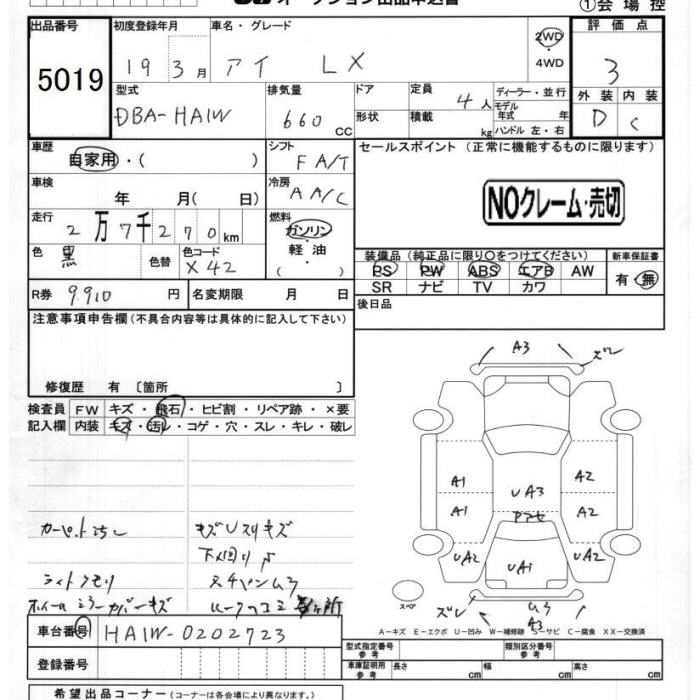 オークション出品申込書
①会場控
出品番号 初度登録年月 車名・グレード 評価点
5019 19 3月 アイ LX 2WD 4WD 3
型式 排気量 ドア 定員 ディーラー・並行 外装 内装
DBA-HA1W 660cc 4人 モデル年式 年 D C
形状 積載 kg ハンドル 左・右
車歴 自家用・( ) シフト FA/T セールスポイント (正常に機能するものに限ります)
車検 年 月( 日) 冷房 AA/C
NOクレーム・売切
走行 2万7千270km 燃料 ガソリン・軽油・( )
色 黒 色替 色コード X42
装備品 (純正品に限り○をつけてください) 新車保証書
PS PW ABS エアB AW 有・無
SR ナビ TV カワ
R券 9.910円 名変期限 月 日 後日品
注意事項申告欄 (不具合内容等は具体的に記入して下さい)
修復歴 有 〔箇所 〕
検査員 FW キズ・飛石・ヒビ割・リペア跡・×要
記入欄 内装 キズ・汚レ・コゲ・穴・スレ・キレ・破レ
A3 ズレ
A1 UA3 A2
A1 A2
UA2 UA1 UA2
スペア ズレ A3
カーペット汚レ キズUスリキズ
下回りサ
ライトクモリ
A−キズ E−エクボ U−凹み W−補修跡 S−サビ C−腐食 XX−交換済
車台番号 HA1W-0202723
登録番号
型式指定番号 参考 類別区分番号 参考
車庫証明用 参考 長さ cm 幅 cm 高さ cm
希望出品コーナー (コーナーは各会場により異なります。)